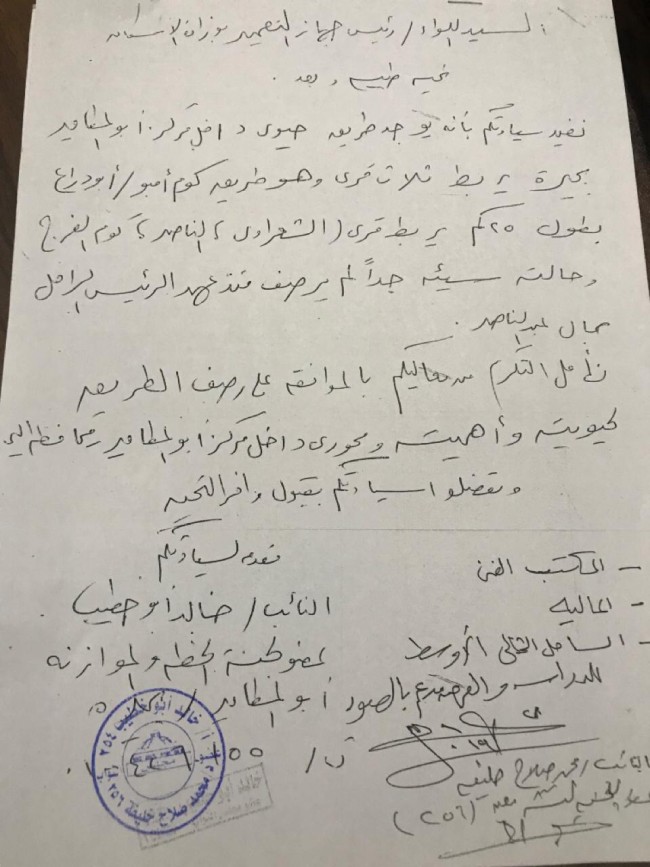 السيد اللواء / رئيس جهاز التعمير بوزارة الإسكان
تحية طيبة وبعد .
نفيد سيادتكم بأنه يوجد طريق حيوى داخل مركز أبو المطامير
بحيرة يربط ثلاث قرى وهو طريق كوم أمبو / أبو دراع
بطول ٢٥ كم يربط قرى ( الشعراوى ، الناصر ، كوم الفرج
وحالته سيئه جداً لم يرصف منذ عهد الرئيس الراحل
جمال عبد الناصر .
نأمل التكرم من معاليكم بالموافقه على رصف الطريق
لحيويته وأهميته ومحورى داخل مركز أبو المطامير بمحافظه البحيرة
وتفضلوا سيادتكم بقبول وافر التحيه
مقدمه لسيادتكم
النائب / خالد أبو خطيب
عضو لجنة الخطه والموازنه
أبو المطامير /
- المكتب الفنى
- الماليه
- الساحل الشمالى الأوسط
للدراسه والعرض بالصور
النائب / محمد صلاح خليفه
(٢٥٦)
خالد أبو خطيب ٢٥٤
د/ محمد صلاح خليفة ٢٥٦